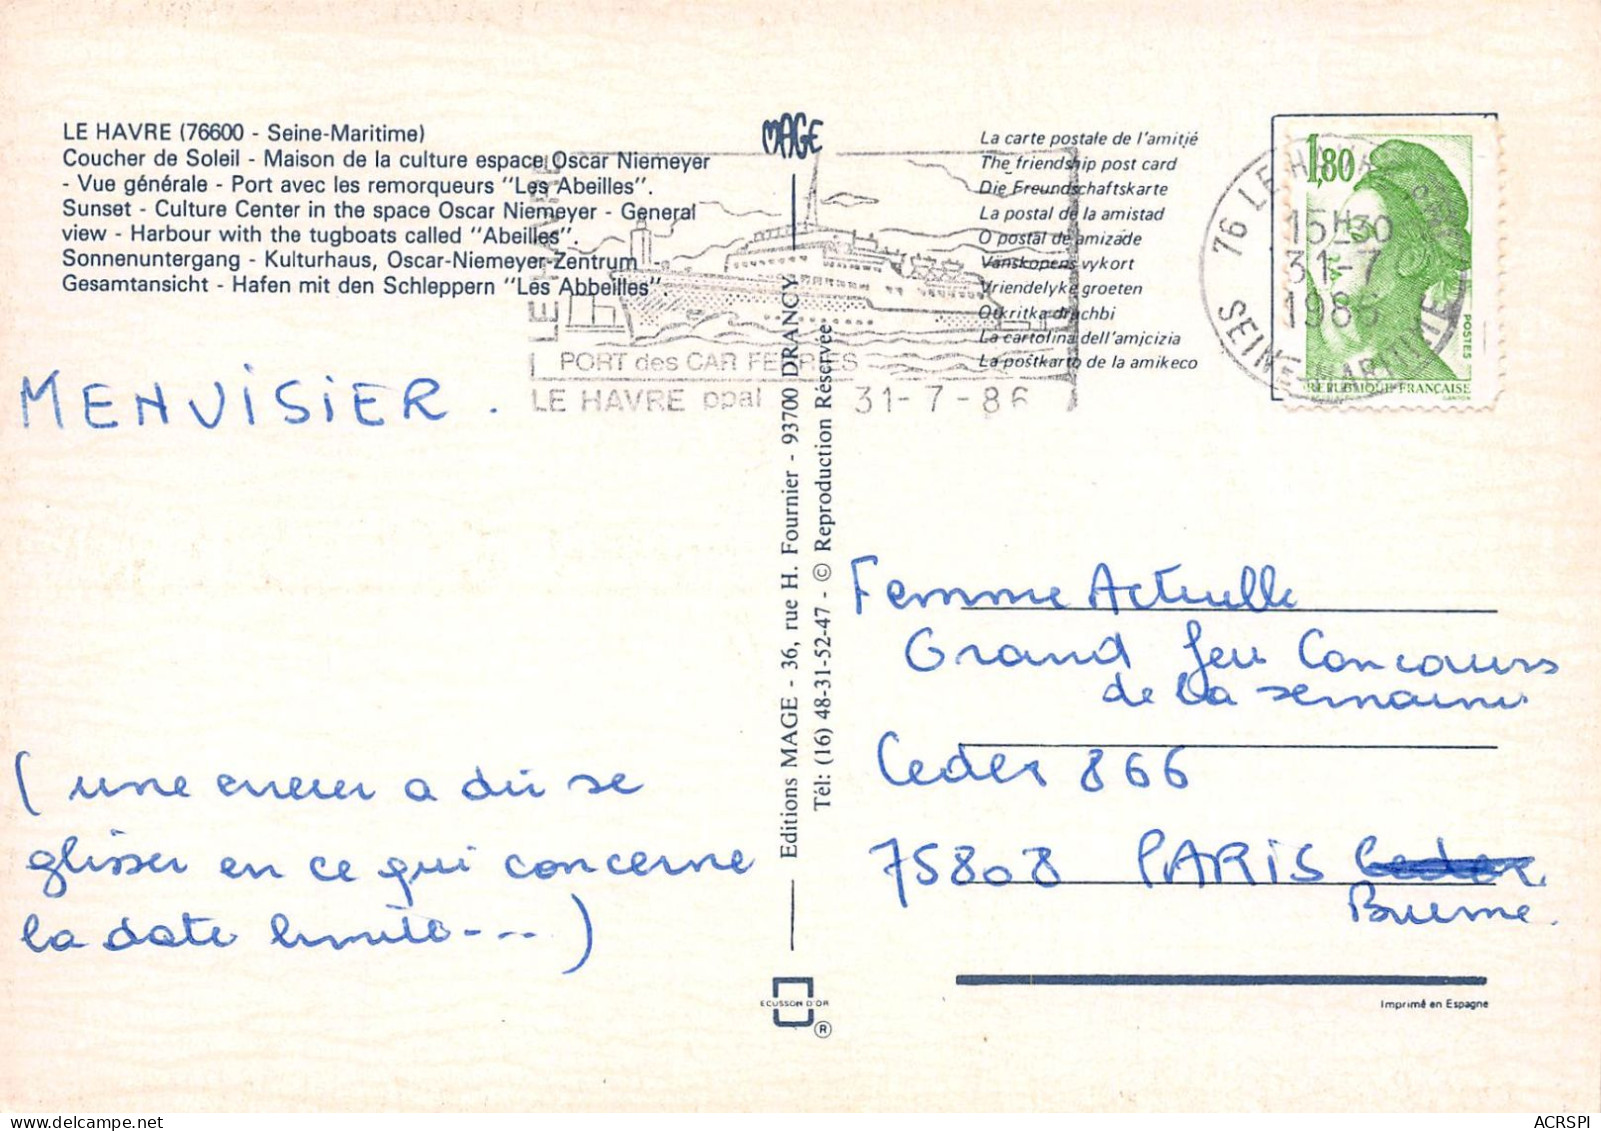 LE HAVRE (76600 - Seine-Maritime)
Coucher de Soleil - Maison de la culture espace Oscar Niemeyer
- Vue générale - Port avec les remorqueurs "Les Abeilles".
Sunset - Culture Center in the space Oscar Niemeyer - General
view - Harbour with the tugboats called "Abeilles".
Sonnenuntergang - Kulturhaus, Oscar-Niemeyer-Zentrum
Gesamtansicht - Hafen mit den Schleppern "Les Abbeilles".
MAGE
La carte postale de l'amitié
The friendship post card
Die Freundschaftskarte
La postal de la amistad
O postal de amizade
Vanskopens vykort
Vriendelyke groeten
Otkritka druchbi
La cartolina dell'amicizia
La poŝtkarto de la amikeco
LE HAVRE
PORT des CAR FERRIES
LE HAVRE ppal 31-7-86
76 LE HAVRE
15H30
31-7
1986
SEINE-MARITIME
1,80
POSTES
REPUBLIQUE FRANCAISE
GANDON
MENUISIER.
(une erreur a dû se
glisser en ce qui concerne
la date limite----)
Editions MAGE - 36, rue H. Fournier - 93700 DRANCY
Tél: (16) 48-31-52-47 - © Reproduction Réservée
Femme Actuelle
Grand Jeu Concours
de la semaine
Cedex 866
75808 PARIS Cedex
Brume.
ECUSSON D'OR
®
Imprimé en Espagne
ACRSPI